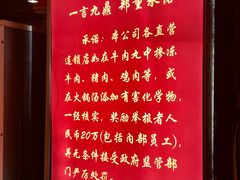 一言九鼎 郑重承诺
承诺：本公司各直营
连锁店如在牛肉丸中掺凉
牛肉、猪肉、鸡肉等，或
在火锅汤添加有害化学物，
一经核实，奖励举报者人
民币20万(包括内部员工)，
并无条件接受政府监管部
门严厉处罚。